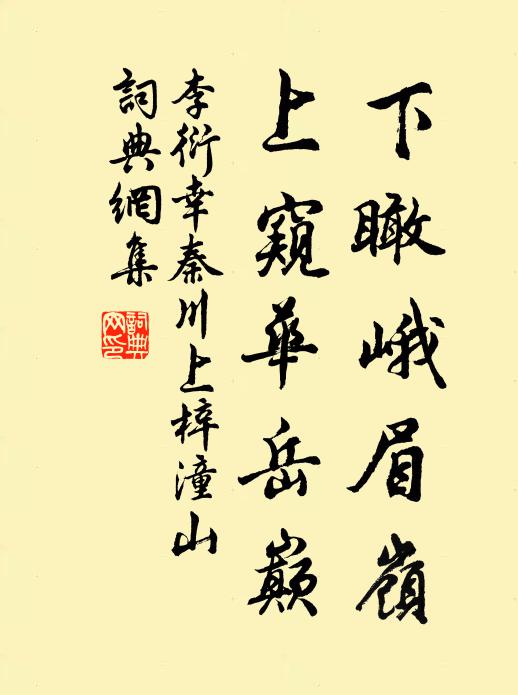 下瞰峨眉嶺
上窺華岳巔
李衍幸秦川上梓潼山
詞典網集
詞典网印